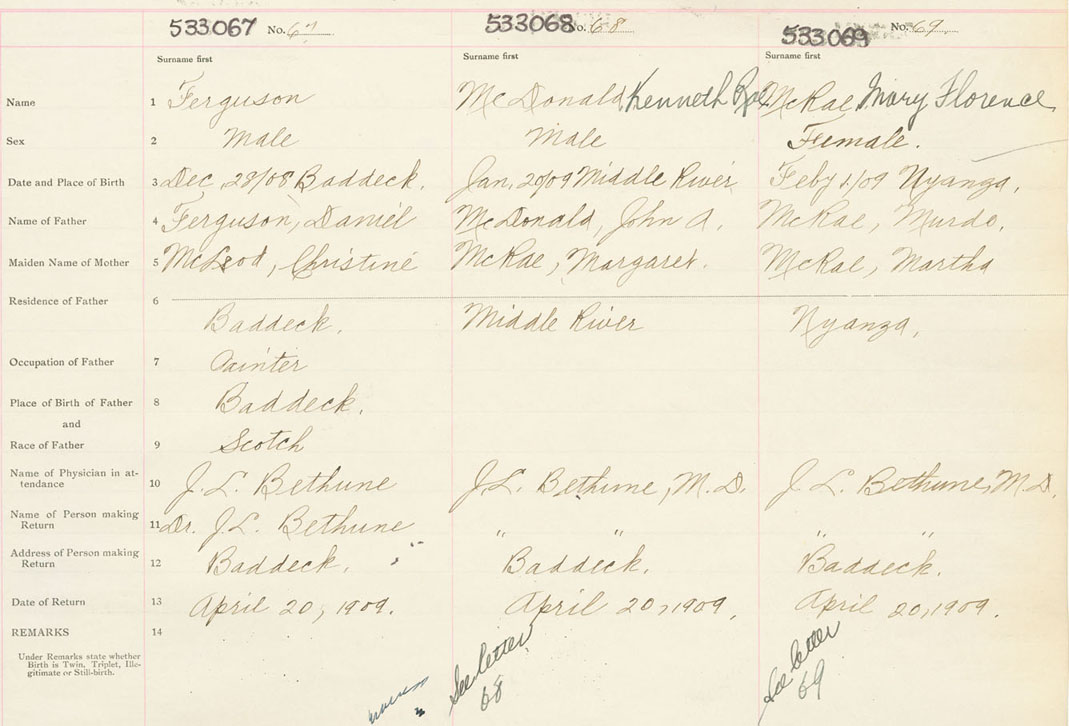 533067 No. 67 533068 No. 68 533069 No. 69
Surname first Surname first Surname first
Name 1 Ferguson McDonald, Kenneth McRae, Mary Florence
Sex 2 Male Male Female.
Date and Place of Birth 3 Dec, 28/08 Baddeck. Jan, 20/09 Middle River Feby 1/09 Nyanza,
Name of Father 4 Ferguson, Daniel McDonald, John A. McRae, Murdo.
Maiden Name of Mother 5 McLeod, Christine McRae, Margaret. McRae, Martha
Residence of Father 6
Baddeck. Middle River Nyanza,
Occupation of Father 7 Painter
Place of Birth of Father 8 Baddeck.
and
Race of Father 9 Scotch
Name of Physician in at-
tendance 10 J. L. Bethune J. L. Bethune, M.D. J. L. Bethune, M.D.
Name of Person making
Return 11 Dr. J. L. Bethune " " " "
Address of Person making
Return 12 Baddeck. Baddeck. Baddeck.
Date of Return 13 April 20, 1909. April 20, 1909. April 20, 1909.
REMARKS 14
Under Remarks state whether
Birth is Twin, Triplet, Ille-
gitimate or Still-birth.
See letter
68
See letter
69